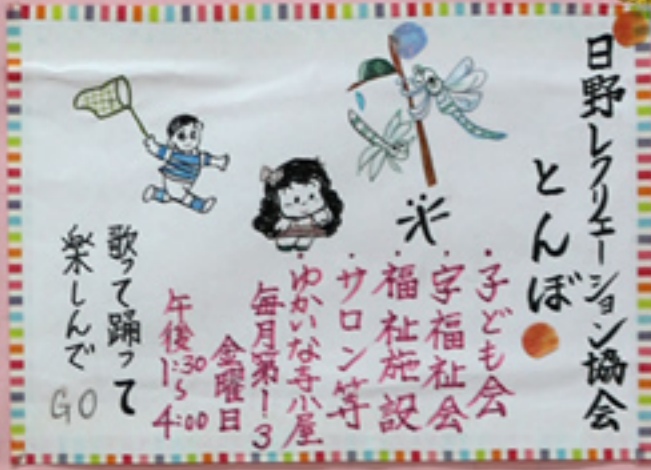 日野レクリエーション協会
とんぼ
・子ども会
・字福祉会
・福祉施設
・サロン等
・ゆかいな寺小屋
毎月第1.3
金曜日
午後1:30～4:00
歌って踊って
楽しんで
GO